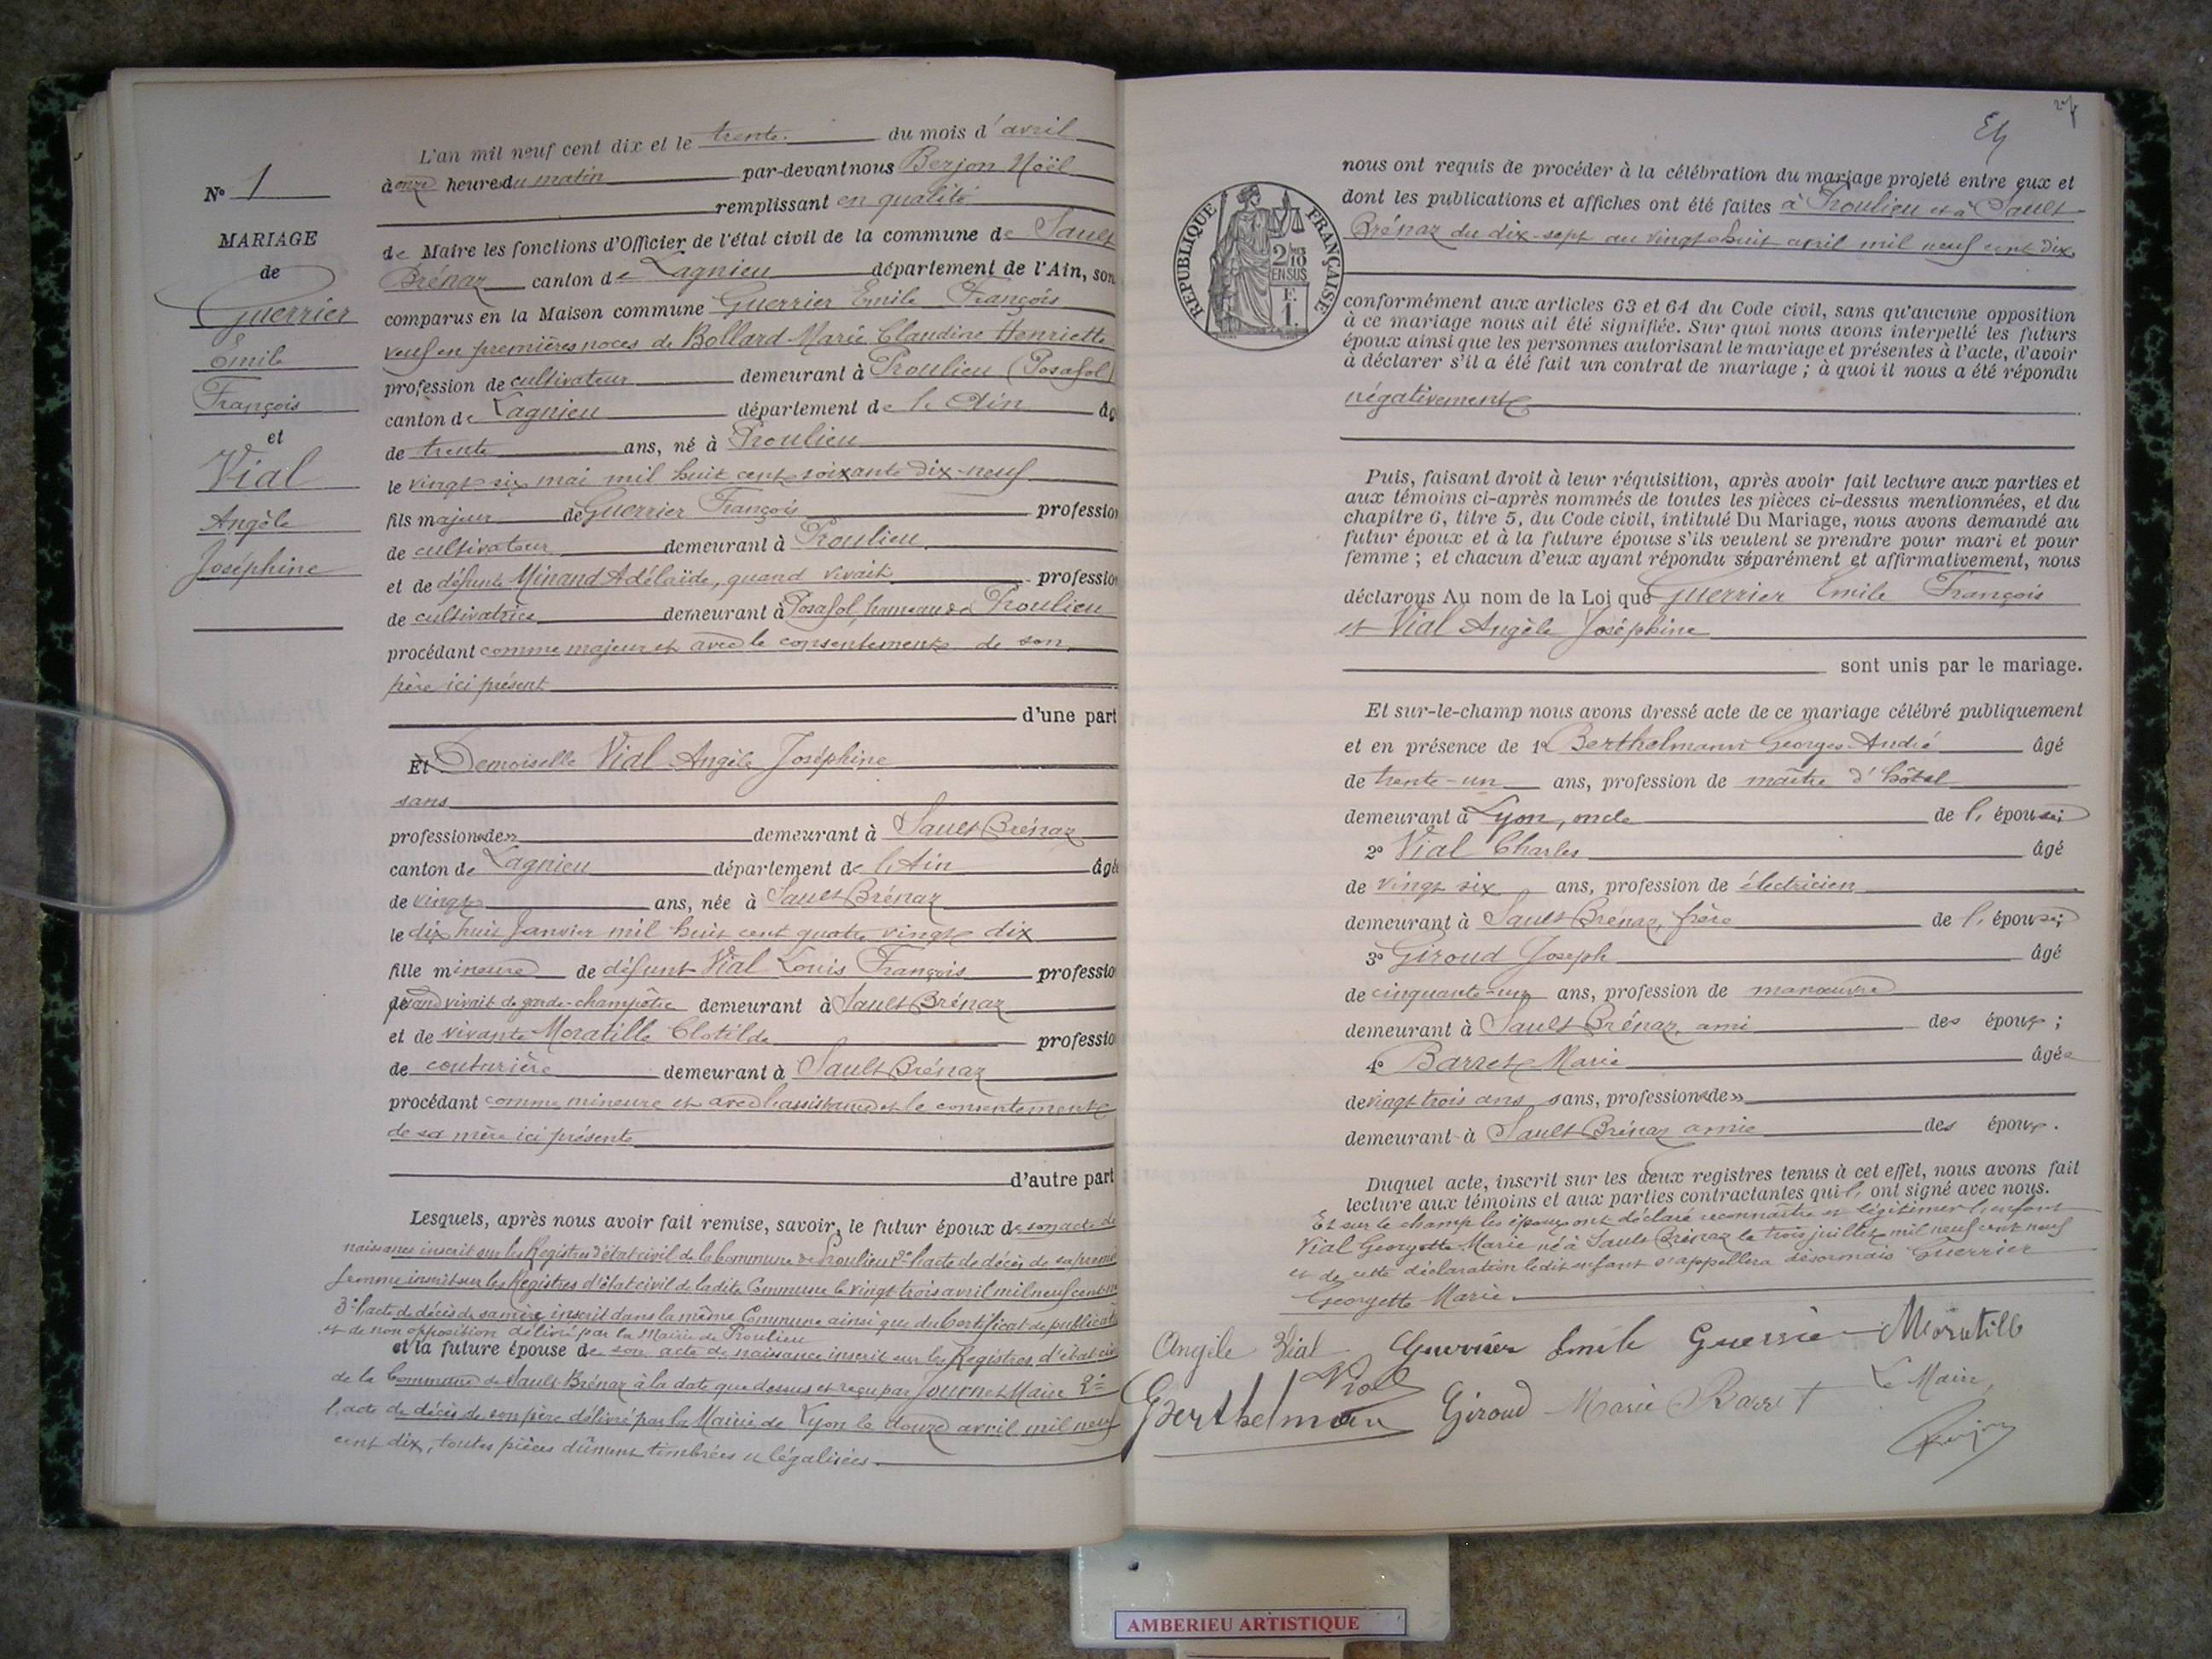 N° 1
MARIAGE
de
Guerrier
Emile
François
et
Vial
Angèle
Joséphine
L'an mil neuf cent dix et le trente du mois d'avril
à onze heures du matin par-devant nous Berjon Noël
remplissant en qualité
de Maire les fonctions d'Officier de l'état civil de la commune de Sault
Brénaz canton de Lagnieu département de l'Ain, son
comparus en la Maison commune Guerrier Emile François
veuf en premières noces de Bollard Marie Claudine Henriette
profession de cultivateur demeurant à Proulieu (Posafol)
canton de Lagnieu département de l'Ain âg
de trente ans, né à Proulieu
le vingt six mai mil huit cent soixante dix-neuf
fils majeur de Guerrier François professio
de cultivateur demeurant à Proulieu
et de défunte Minand Adélaïde, quand vivait professio
de cultivatrice demeurant à Posafol, hameau de Proulieu
procédant comme majeur et avec le consentement de son
père ici présent
d'une part
Et Demoiselle Vial Angèle Joséphine
sans
profession «de» demeurant à Sault Brénaz
canton de Lagnieu département de l'Ain âgé
de vingt ans, née à Sault Brénaz
le dix huit Janvier mil huit cent quatre vingt dix
fille mineure de défunt Vial Louis François professio
quand vivait de garde-champêtre demeurant à Sault Brénaz
et de vivante Moratille Clotilde professio
de couturière demeurant à Sault Brénaz
procédant comme mineure et avec l'assistance et le consentement
de sa mère ici présente
d'autre part
Lesquels, après nous avoir fait remise, savoir, le futur époux de son acte de
naissance inscrit sur les Registres d'état civil de la Commune de Proulieu 2° l'acte de décès de sa première
femme inscrit sur les Registres d'état civil de ladite Commune le vingt trois avril mil neuf cent
3° l'acte de décès de sa mère inscrit dans la même Commune ainsi que du Certificat de publicat
et de non opposition délivré par la Mairie de Proulieu
et la future épouse de son acte de naissance inscrit sur les Registres d'état civ
de la Commune de Sault-Brénaz à la date que dessus et reçu par Journet Maire 2°
l'acte de décès de son père délivré par la Mairie de Lyon le douze avril mil neuf
cent dix, toutes pièces dûment timbrées et légalisées.
REPUBLIQUE FRANÇAISE
2/10
EN SUS
F.
1.
nous ont requis de procéder à la célébration du mariage projeté entre eux et
dont les publications et affiches ont été faites à Proulieu et à Sault
Brénaz du dix-sept au vingt-huit avril mil neuf cent dix
conformément aux articles 63 et 64 du Code civil, sans qu'aucune opposition
à ce mariage nous ait été signifiée. Sur quoi nous avons interpellé les futurs
époux ainsi que les personnes autorisant le mariage et présentes à l'acte, d'avoir
à déclarer s'il a été fait un contrat de mariage ; à quoi il nous a été répondu
négativement
Puis, faisant droit à leur réquisition, après avoir fait lecture aux parties et
aux témoins ci-après nommés de toutes les pièces ci-dessus mentionnées, et du
chapitre 6, titre 5, du Code civil, intitulé Du Mariage, nous avons demandé au
futur époux et à la future épouse s'ils veulent se prendre pour mari et pour
femme ; et chacun d'eux ayant répondu séparément et affirmativement, nous
déclarons Au nom de la Loi que Guerrier Emile François
et Vial Angèle Joséphine
sont unis par le mariage.
Et sur-le-champ nous avons dressé acte de ce mariage célébré publiquement
et en présence de 1° Berthelmann Georges-André âgé
de trente-un ans, profession de maître d'hôtel
demeurant à Lyon, oncle de l'épouse;
2° Vial Charles âgé
de vingt six ans, profession de électricien
demeurant à Sault Brénaz, frère de l'épouse;
3° Giroud Joseph âgé
de cinquante-un ans, profession de manœuvre
demeurant à Sault Brénaz, ami des époux ;
4° Barret Marie âgée
de vingt trois ans, sans, profession «de»
demeurant à Sault Brénaz amie des époux.
Duquel acte, inscrit sur les deux registres tenus à cet effet, nous avons fait
lecture aux témoins et aux parties contractantes qui l' ont signé avec nous.
Et sur le champ les époux ont déclaré reconnaître et légitimer l'enfant
Vial Georgette Marie né à Sault Brénaz le trois juillet mil neuf cent neuf
et de cette déclaration ledit enfant s'appellera désormais Guerrier
Georgette Marie.
Angèle Vial Guerrier Emile Guerrie Moratille
Vial
Berthelmann Giroud Marie Barret Le Maire,
Berjon
AMBERIEU ARTISTIQUE